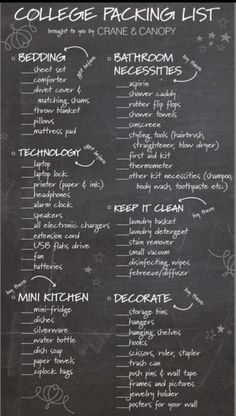 COLLEGE PACKING LIST
brought to you by CRANE & CANOPY
BEDDING
get before
sheet set
comforter
duvet cover &
matching shams
throw blanket
pillows
mattress pad
TECHNOLOGY
get before
laptop
laptop lock
printer (paper & ink)
headphones
alarm clock
speakers
all electronic chargers
extension cord
USB flash drive
fan
batteries
MINI KITCHEN
buy there
mini-fridge
dishes
silverware
water bottle
dish soap
paper towels
ziplock bags
BATHROOM
NECESSITIES
buy there
aspirin
shower caddy
rubber flip flops
shower towels
sunscreen
styling tools (hairbrush,
straightener, blow dryer)
first aid kit
thermometer
other kit necessities (shampoo,
body wash, toothpaste etc.)
KEEP IT CLEAN
buy there
laundry basket
laundry detergent
stain remover
small vacuum
disinfecting wipes
febreeze/diffuser
DECORATE
buy there
storage bins
hangers
hanging shelves
hooks
scissors, ruler, stapler
trash can
push pins & wall tape
frames and pictures
jewelry holder
posters for your wall